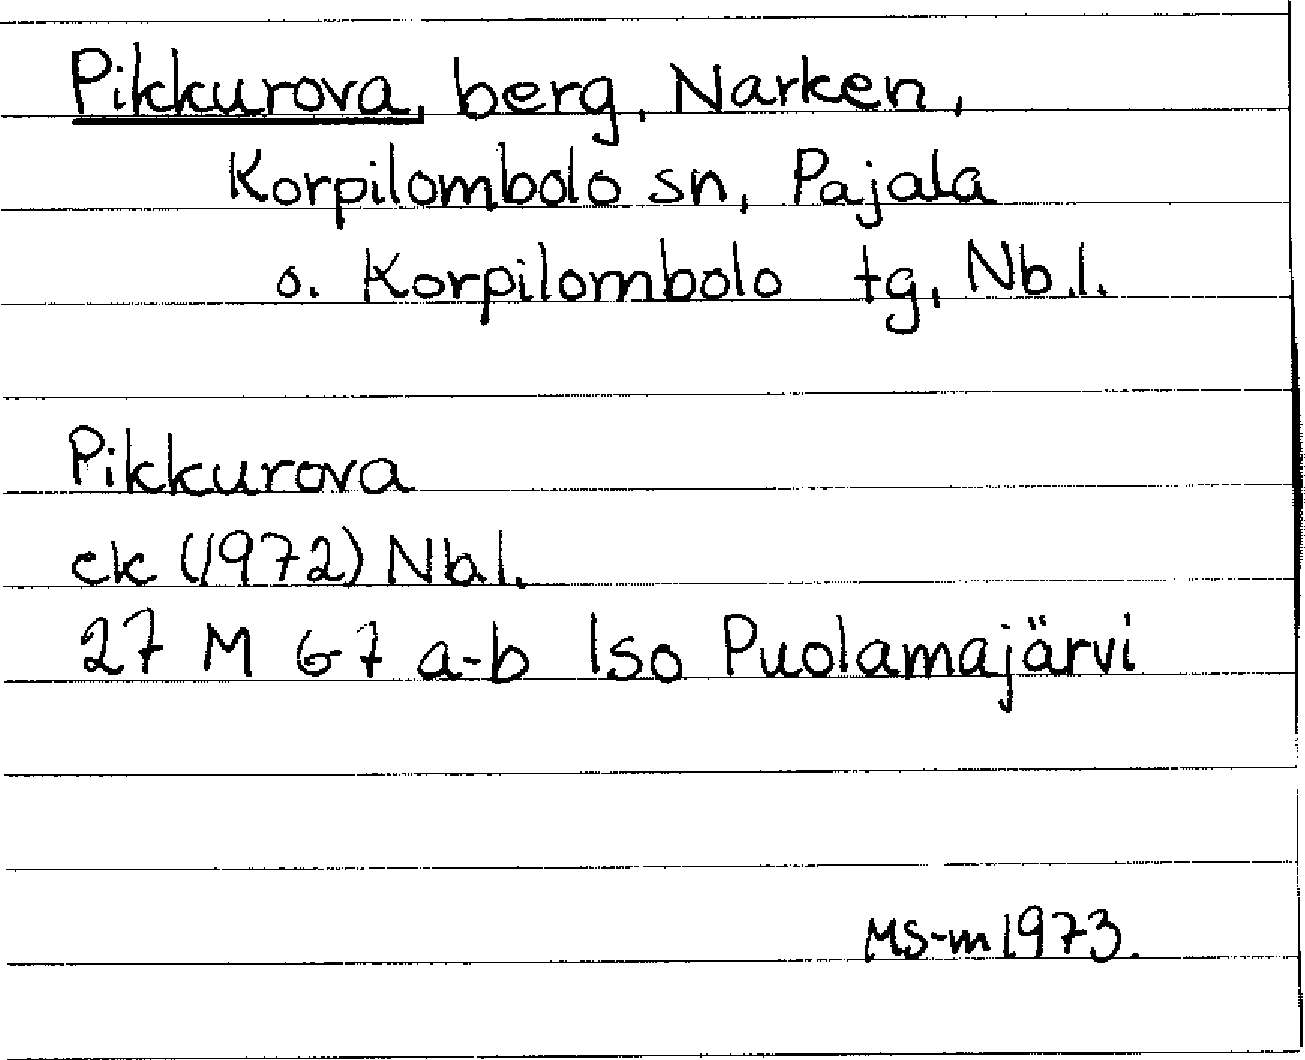 Pikkurova, berg, Narken,
Korpilombolo sn, Pajala
o. Korpilombolo tg, Nb.l.
Pikkurova
ek (1972) Nb.l.
27 M 67 a-b Iso Puolamajärvi
MS-m 1973.